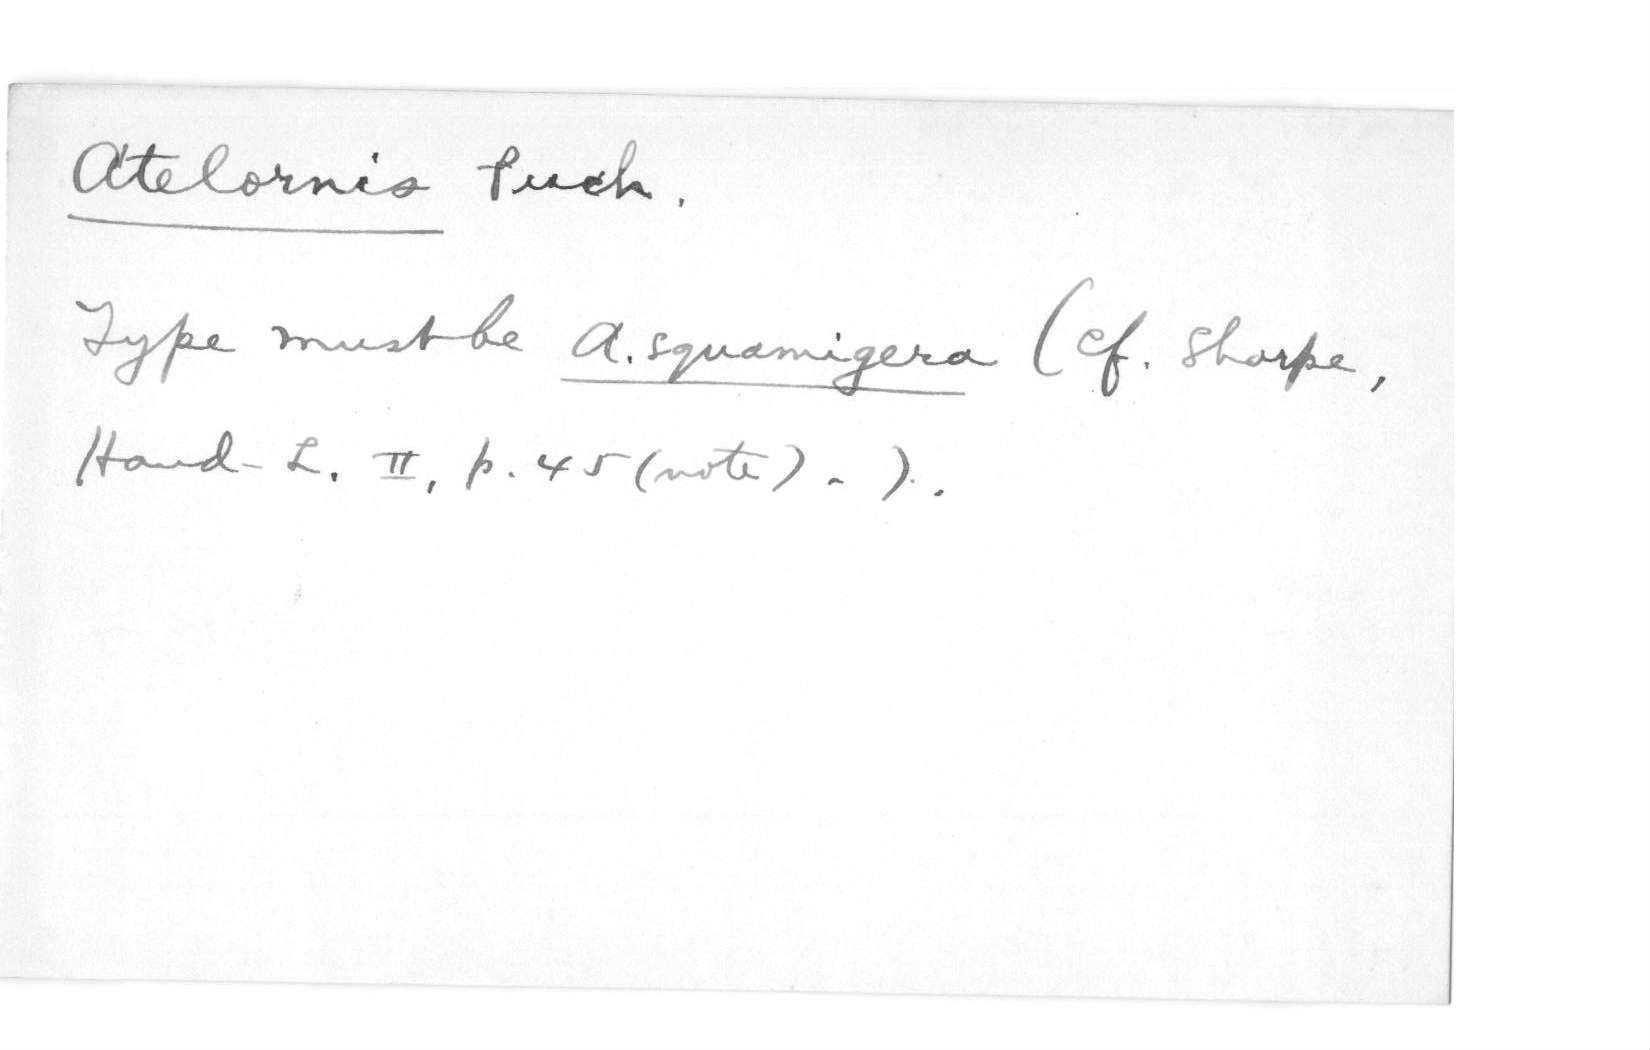 Atelornis Puch.
Type must be A. squamigera (cf. Sharpe,
Hand-L. II, p. 45 (note). ).